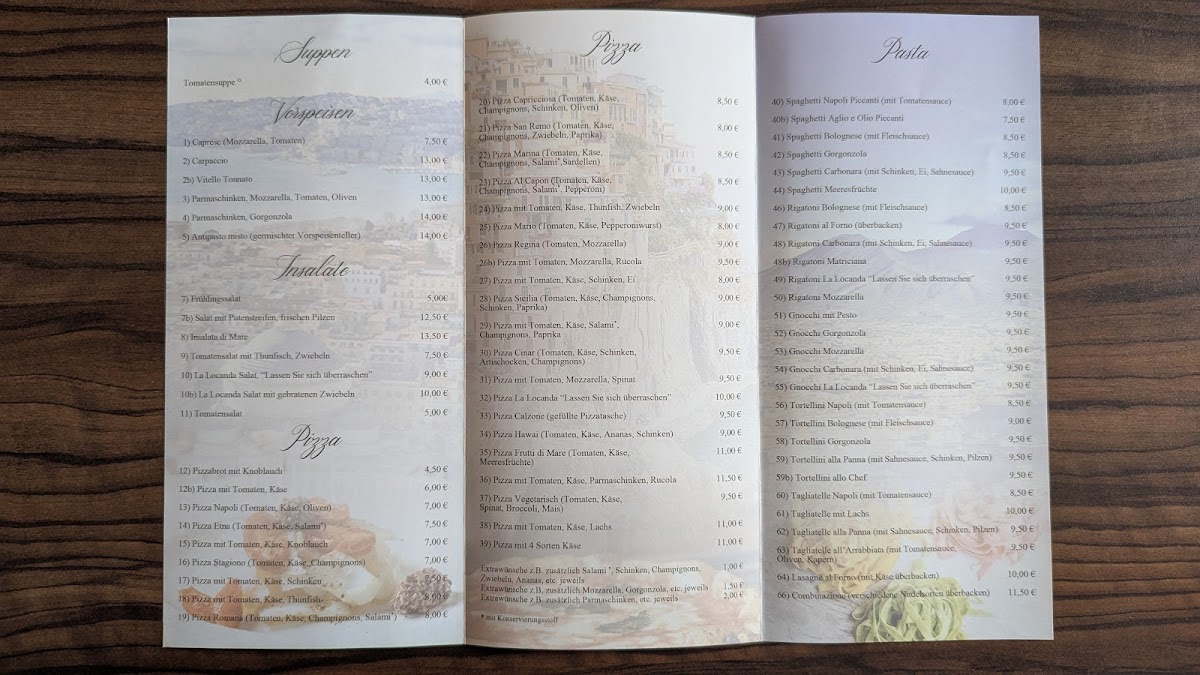 Suppen
Tomatensuppe 4,00 €
Vorspeisen
1) Caprese (Mozzarella, Tomaten) 7,50 €
2) Carpaccio 13,00 €
2b) Vitello Tonnato 13,00 €
3) Parmaschinken, Mozzarella, Tomaten, Oliven 13,00 €
4) Parmaschinken, Gorgonzola 14,00 €
5) Antipasto misto (germischter Vorspeisenteller) 14,00 €
Insalate
7) Frühlingssalat 5,00€
7b) Salat mit Putenstreifen, frischen Pilzen 12,50 €
8) Insalata di Mare 13,50 €
9) Tomatensalat mit Thunfisch, Zwiebeln 7,50 €
10) La Locanda Salat, “Lassen Sie sich überraschen” 9,00 €
10b) La Locanda Salat mit gebratenen Zwiebeln 10,00 €
11) Tomatensalat 5,00 €
Pizza
12) Pizzabrot mit Knoblauch 4,50 €
12b) Pizza mit Tomaten, Käse 6,00 €
13) Pizza Napoli (Tomaten, Käse, Oliven) 7,00 €
14) Pizza Etna (Tomaten, Käse, Salami*) 7,50 €
15) Pizza mit Tomaten, Käse, Knoblauch 7,00 €
16) Pizza Stagiono (Tomaten, Käse, Champignons) 7,00 €
17) Pizza mit Tomaten, Käse, Schinken 7,50 €
18) Pizza mit Tomaten, Käse, Thunfish 8,00 €
19) Pizza Romana (Tomaten, Käse, Champignons, Salami*) 8,00 €
Pizza
20) Pizza Capricciosa (Tomaten, Käse,
Champignons, Schinken, Oliven) 8,50 €
21) Pizza San Remo (Tomaten, Käse,
Champignons, Zwiebeln, Paprika) 8,00 €
22) Pizza Marina (Tomaten, Käse,
Champignons, Salami*,Sardellen) 8,50 €
23) Pizza Al Capon (Tomaten, Käse,
Champignons, Salami*, Pepperoni) 8,50 €
24) Pizza mit Tomaten, Käse, Thunfish, Zwiebeln 9,00 €
25) Pizza Mario (Tomaten, Käse, Pepperoniwurst) 8,00 €
26) Pizza Regina (Tomaten, Mozzarella) 9,00 €
26b) Pizza mit Tomaten, Mozzarella, Rucola 9,50 €
27) Pizza mit Tomaten, Käse, Schinken, Ei 8,00 €
28) Pizza Sicilia (Tomaten, Käse, Champignons,
Schinken, Paprika) 9,00 €
29) Pizza mit Tomaten, Käse, Salami*,
Champignons, Paprika 9,00 €
30) Pizza Cinar (Tomaten, Käse, Schinken,
Artischocken, Champignons) 9,50 €
31) Pizza mit Tomaten, Mozzarella, Spinat 9,50 €
32) Pizza La Locanda “Lassen Sie sich überraschen” 10,00 €
33) Pizza Calzone (gefüllte Pizzatasche) 9,50 €
34) Pizza Hawai (Tomaten, Käse, Ananas, Schinken) 9,00 €
35) Pizza Frutti di Mare (Tomaten, Käse,
Meeresfrüchte) 11,00 €
36) Pizza mit Tomaten, Käse, Parmaschinken, Rucola 11,50 €
37) Pizza Vegetarisch (Tomaten, Käse,
Spinat, Broccoli, Mais) 9,50 €
38) Pizza mit Tomaten, Käse, Lachs 11,00 €
39) Pizza mit 4 Sorten Käse 11,00 €
Extrawünsche z.B. zusätzlich Salami *, Schinken, Champignons, 1,00 €
Zwiebeln, Ananas, etc. jeweils
Extrawünsche z.B. zusätzlich Mozzarella, Gorgonzola, etc. jeweils 1,50 €
Extrawünsche z.B. zusätzlich Parmaschinken, etc. jeweils 2,00 €
* mit Konservierungsstoff
Pasta
40) Spaghetti Napoli Piccanti (mit Tomatensauce) 8,00 €
40b) Spaghetti Aglio e Olio Piccanti 7,50 €
41) Spaghetti Bolognese (mit Fleischsauce) 8,50 €
42) Spaghetti Gorgonzola 8,50 €
43) Spaghetti Carbonara (mit Schinken, Ei, Sahnesauce) 9,50 €
44) Spaghetti Meeresfrüchte 10,00 €
46) Rigatoni Bolognese (mit Fleischsauce) 8,50 €
47) Rigatoni al Forno (überbacken) 9,00 €
48) Rigatoni Carbonara (mit Schinken, Ei, Sahnesauce) 9,50 €
48b) Rigatoni Matriciana 9,50 €
49) Rigatoni La Locanda “Lassen Sie sich überraschen” 9,50 €
50) Rigatoni Mozzarella 9,50 €
51) Gnocchi mit Pesto 9,50 €
52) Gnocchi Gorgonzola 9,50 €
53) Gnocchi Mozzarella 9,50 €
54) Gnocchi Carbonara (mit Schinken, Ei, Sahnesauce) 9,50 €
55) Gnocchi La Locanda “Lassen Sie sich überraschen” 9,50 €
56) Tortellini Napoli (mit Tomatensauce) 8,50 €
57) Tortellini Bolognese (mit Fleischsauce) 9,00 €
58) Tortellini Gorgonzola 9,50 €
59) Tortellini alla Panna (mit Sahnesauce, Schinken, Pilzen) 9,50 €
59b) Tortellini allo Chef 9,50 €
60) Tagliatelle Napoli (mit Tomatensauce) 8,50 €
61) Tagliatelle mit Lachs 10,00 €
62) Tagliatelle alla Panna (mit Sahnesauce, Schinken, Pilzen) 9,50 €
63) Tagliatelle all'Arrabbiata (mit Tomatensauce, 9,50 €
Oliven, Kapern)
64) Lasagne al Forno (mit Käse überbacken) 10,00 €
66) Combinazione (verschiedene Nudelsorten überbacken) 11,50 €